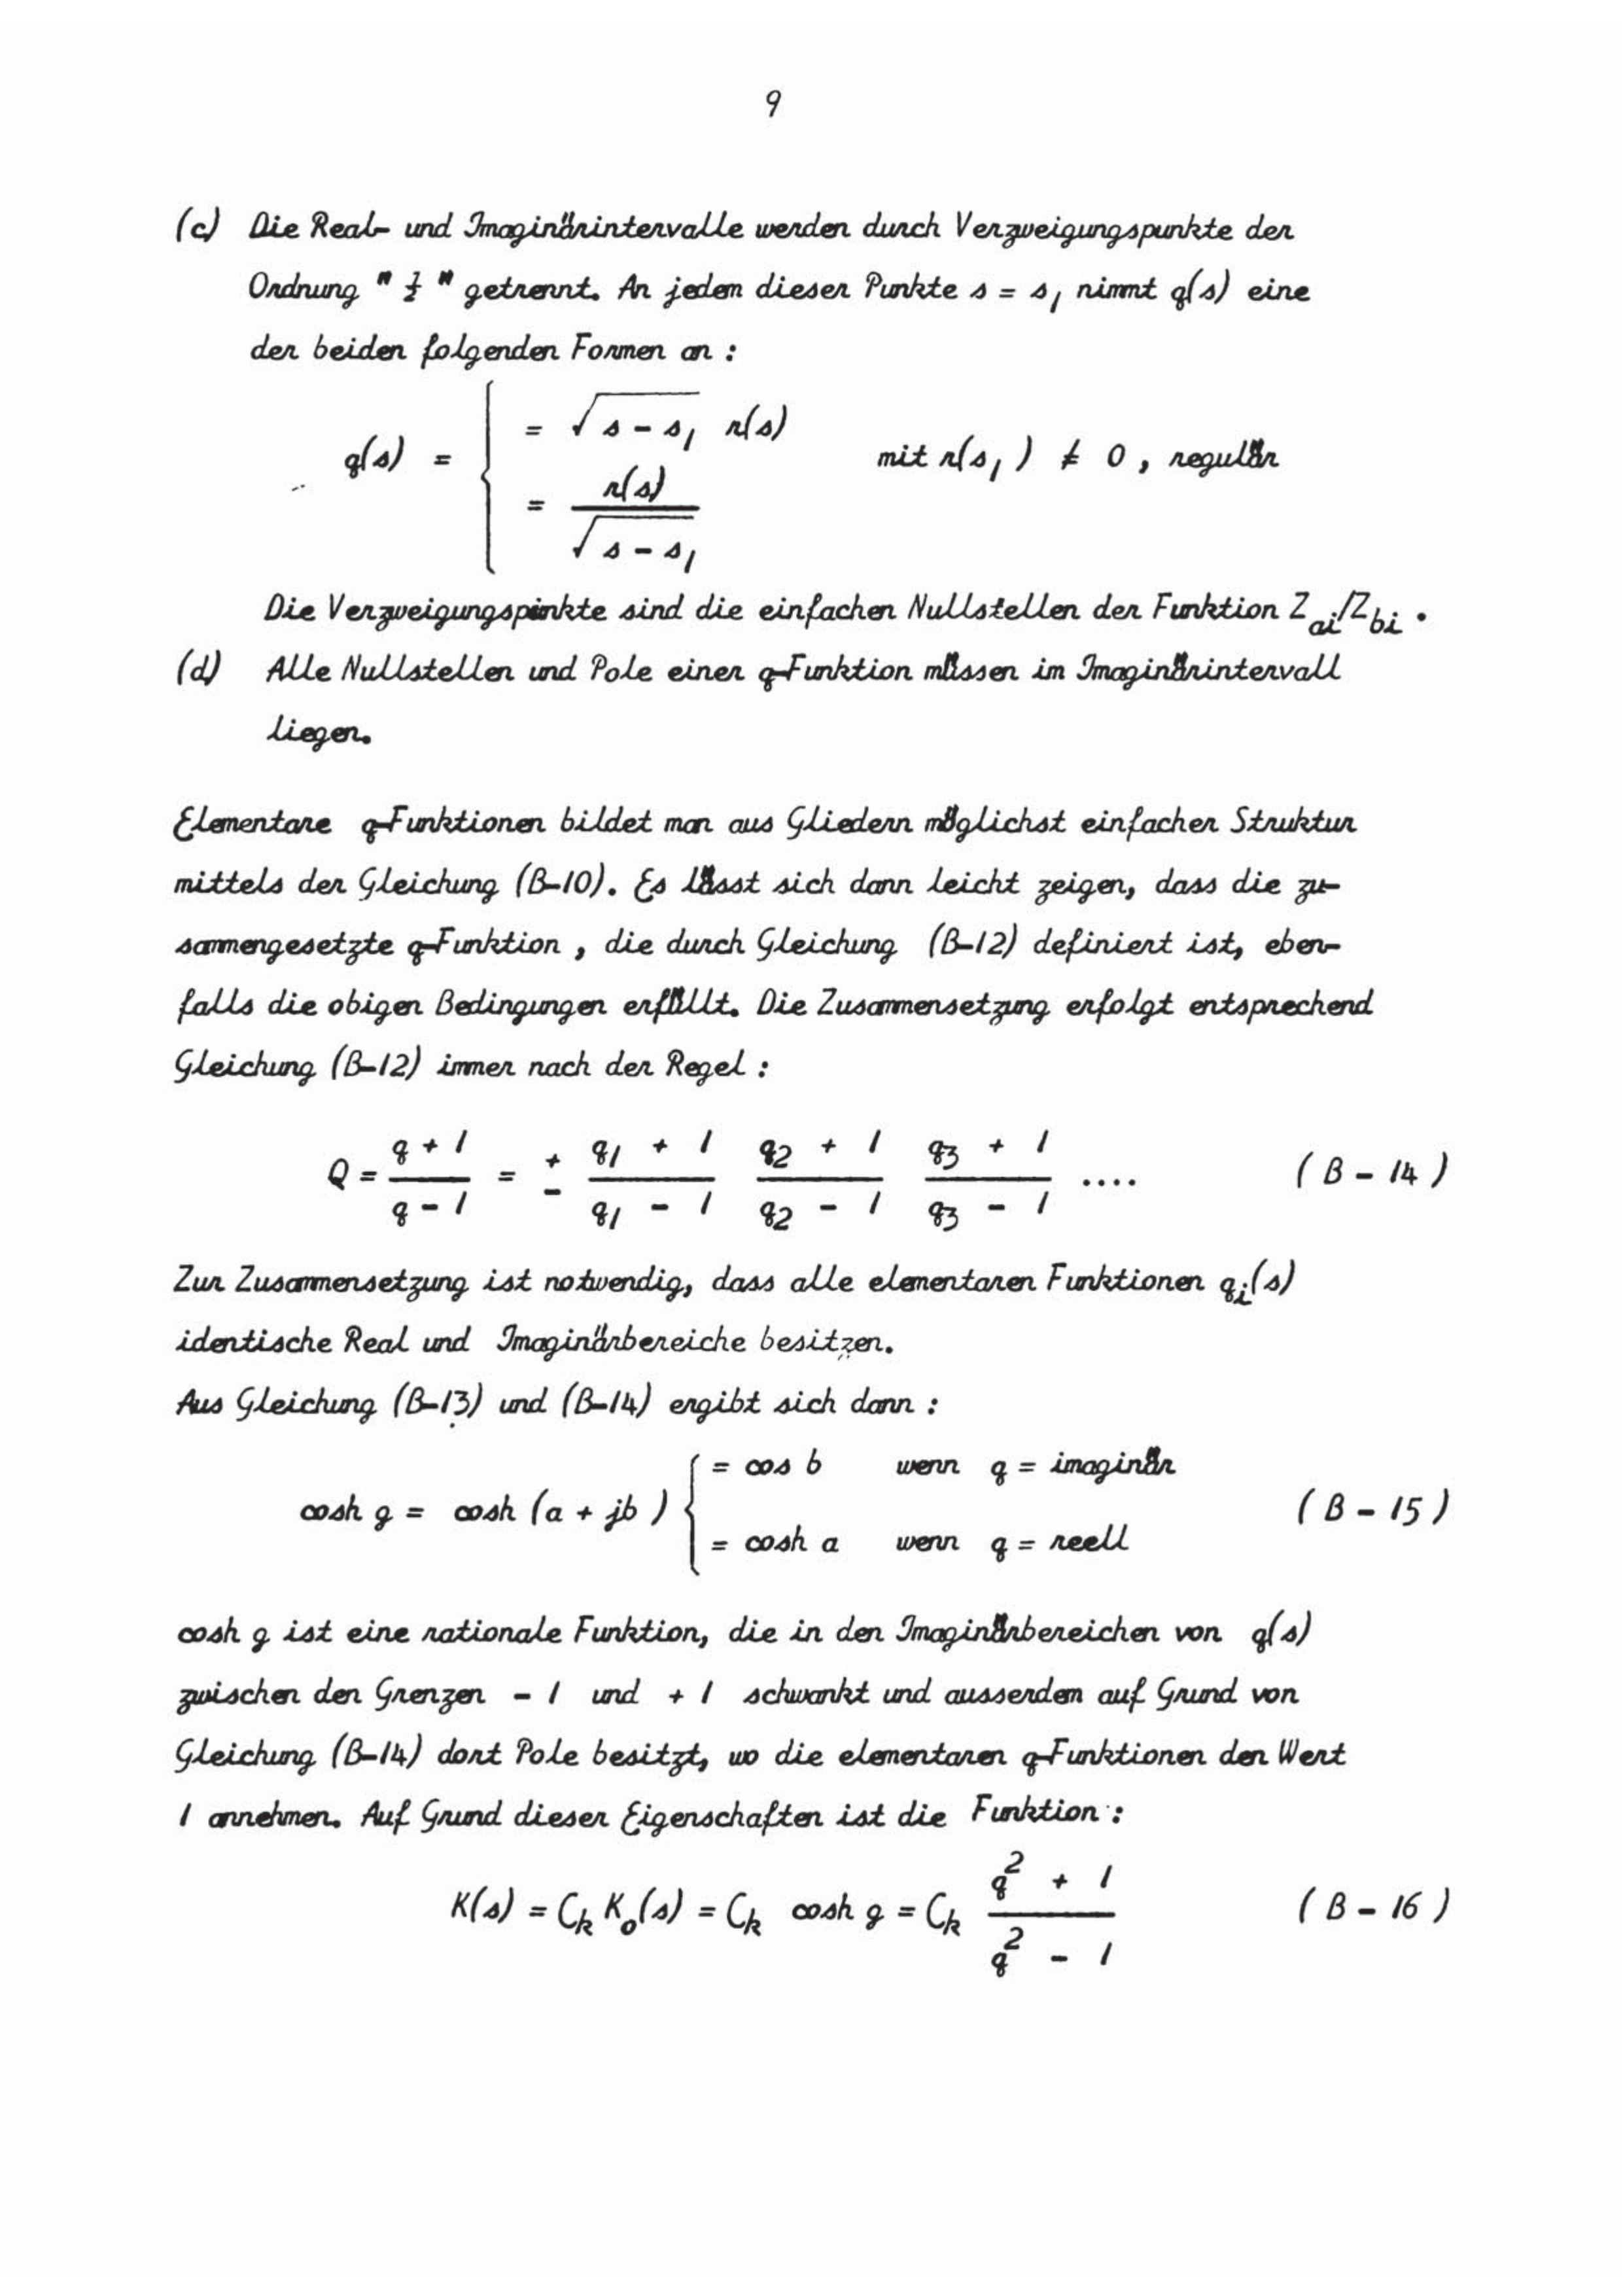 9
(c) Die Real- und Imaginärintervalle werden durch Verzweigungspunkte der
Ordnung " ½ " getrennt. An jedem dieser Punkte s = s₁ nimmt q(s) eine
der beiden folgenden Formen an :
q(s) = { = √(s - s₁) r(s)
= r(s) / √(s - s₁)
mit r(s₁) ≠ 0, regulär
Die Verzweigungspunkte sind die einfachen Nullstellen der Funktion Z_ai/Z_bi .
(d) Alle Nullstellen und Pole einer q-Funktion müssen im Imaginärintervall
liegen.
Elementare q-Funktionen bildet man aus Gliedern möglichst einfacher Struktur
mittels der Gleichung (B-10). Es lässt sich dann leicht zeigen, dass die zu-
sammengesetzte q-Funktion , die durch Gleichung (B-12) definiert ist, eben-
falls die obigen Bedingungen erfüllt. Die Zusammensetzung erfolgt entsprechend
Gleichung (B-12) immer nach der Regel :
Q = (q + 1)/(q - 1) = ± (q₁ + 1)/(q₁ - 1) (q₂ + 1)/(q₂ - 1) (q₃ + 1)/(q₃ - 1) .... ( B - 14 )
Zur Zusammensetzung ist notwendig, dass alle elementaren Funktionen qᵢ(s)
identische Real und Imaginärbereiche besitzen.
Aus Gleichung (B-13) und (B-14) ergibt sich dann :
cosh g = cosh (a + jb) { = cos b wenn q = imaginär
= cosh a wenn q = reell
( B - 15 )
cosh g ist eine rationale Funktion, die in den Imaginärbereichen von q(s)
zwischen den Grenzen - 1 und + 1 schwankt und ausserdem auf Grund von
Gleichung (B-14) dort Pole besitzt, wo die elementaren q-Funktionen den Wert
1 annehmen. Auf Grund dieser Eigenschaften ist die Funktion :
K(s) = C_k K₀(s) = C_k cosh g = C_k (q² + 1)/(q² - 1) ( B - 16 )